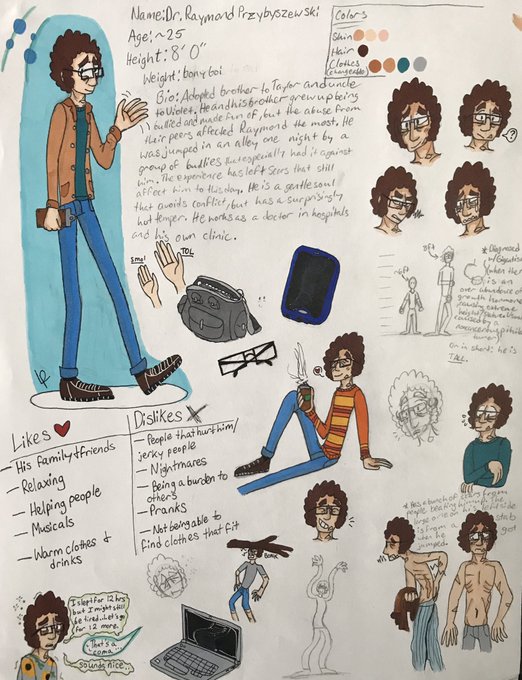 Name: Dr. Raymond Przybyszewski
Age: ~25
Height: 8' 0"
Weight: bony boi
Bio: Adopted brother to Taylor and uncle
to Violet. He and his brother grew up being
bullied and made fun of, but the abuse from
their peers affected Raymond the most. He
was jumped in an alley one night by a
group of bullies that especially had it against
him. The experience has left scars that still
affect him to this day. He is a gentle soul
that avoids conflict, but has a surprisingly
hot temper. He works as a doctor in hospitals
and his own clinic.
Colors
Skin
Hair
Clothes
(changeable)
?
Smol
TOL
*Diagnosed
w/ Gigantism
(when there
is an
over abundance of
growth hormones
causing extreme
height/
caused by a
noncancerous pituitary
tumor
or in short: he is
TALL.
~6ft
8ft
Likes
— His family & friends
— Relaxing
— Helping people
— Musicals
— Warm clothes &
drinks
Dislikes
— People that hurt him/
jerky people
— Nightmares
— Being a burden to
others
— Pranks
— Not being able to
find clothes that fit
*Has a bunch of scars from
people beating him up. The
large one on his side
is from a stab
when he got
jumped.
BONK
I slept for 12 hrs
but I might still
be tired. Let's go
for 12 more.
That's a
coma...
Sounds nice...